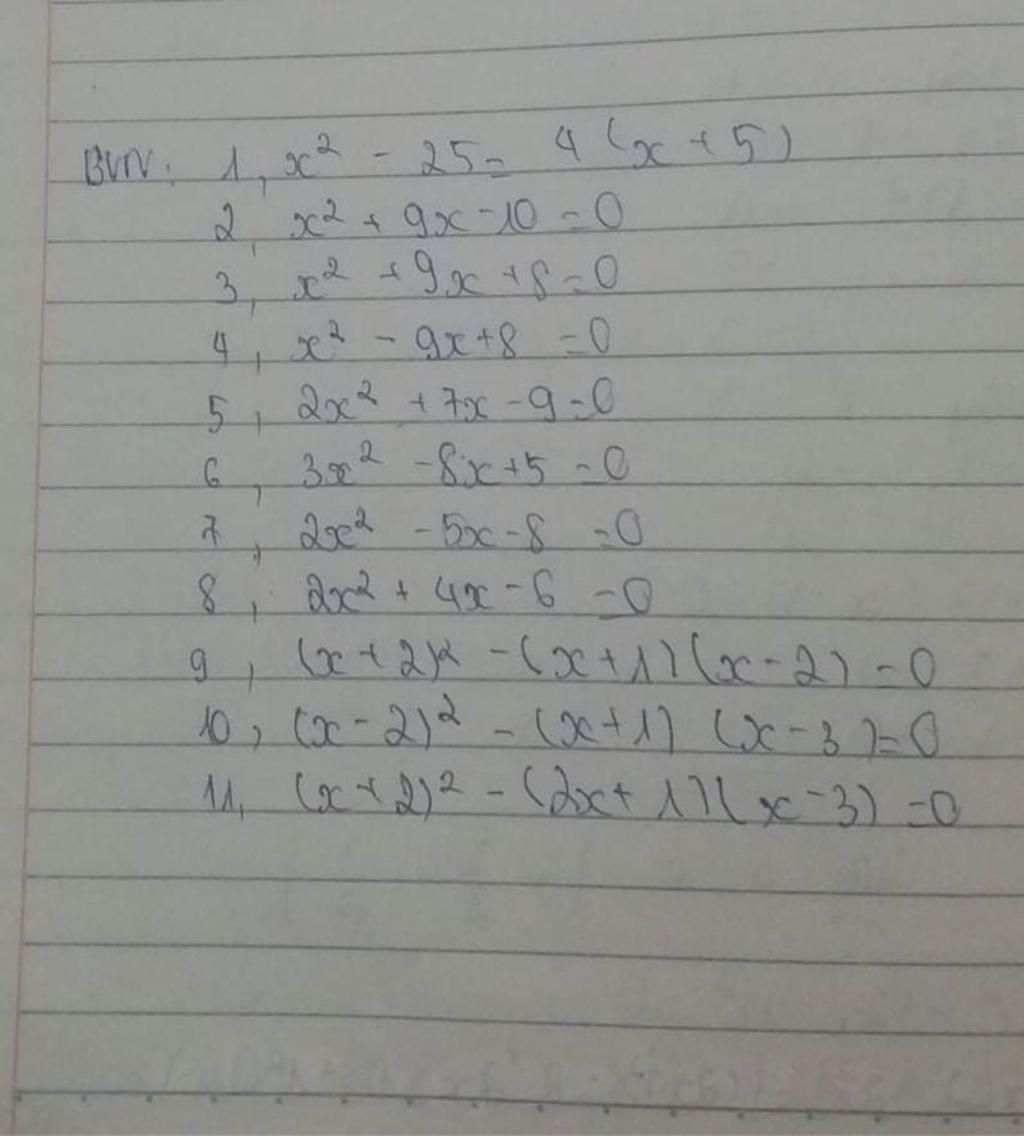 BVN: 1, x² - 25 = 4(x + 5)
2, x² + 9x - 10 = 0
3, x² + 9x + 8 = 0
4, x² - 9x + 8 = 0
5, 2x² + 7x - 9 = 0
6, 3x² - 8x + 5 = 0
7, 2x² - 5x - 8 = 0
8, 2x² + 4x - 6 = 0
9, (x + 2)² - (x + 1)(x - 2) = 0
10, (x - 2)² - (x + 1) (x - 3) = 0
11, (x + 2)² - (2x + 1)(x - 3) = 0